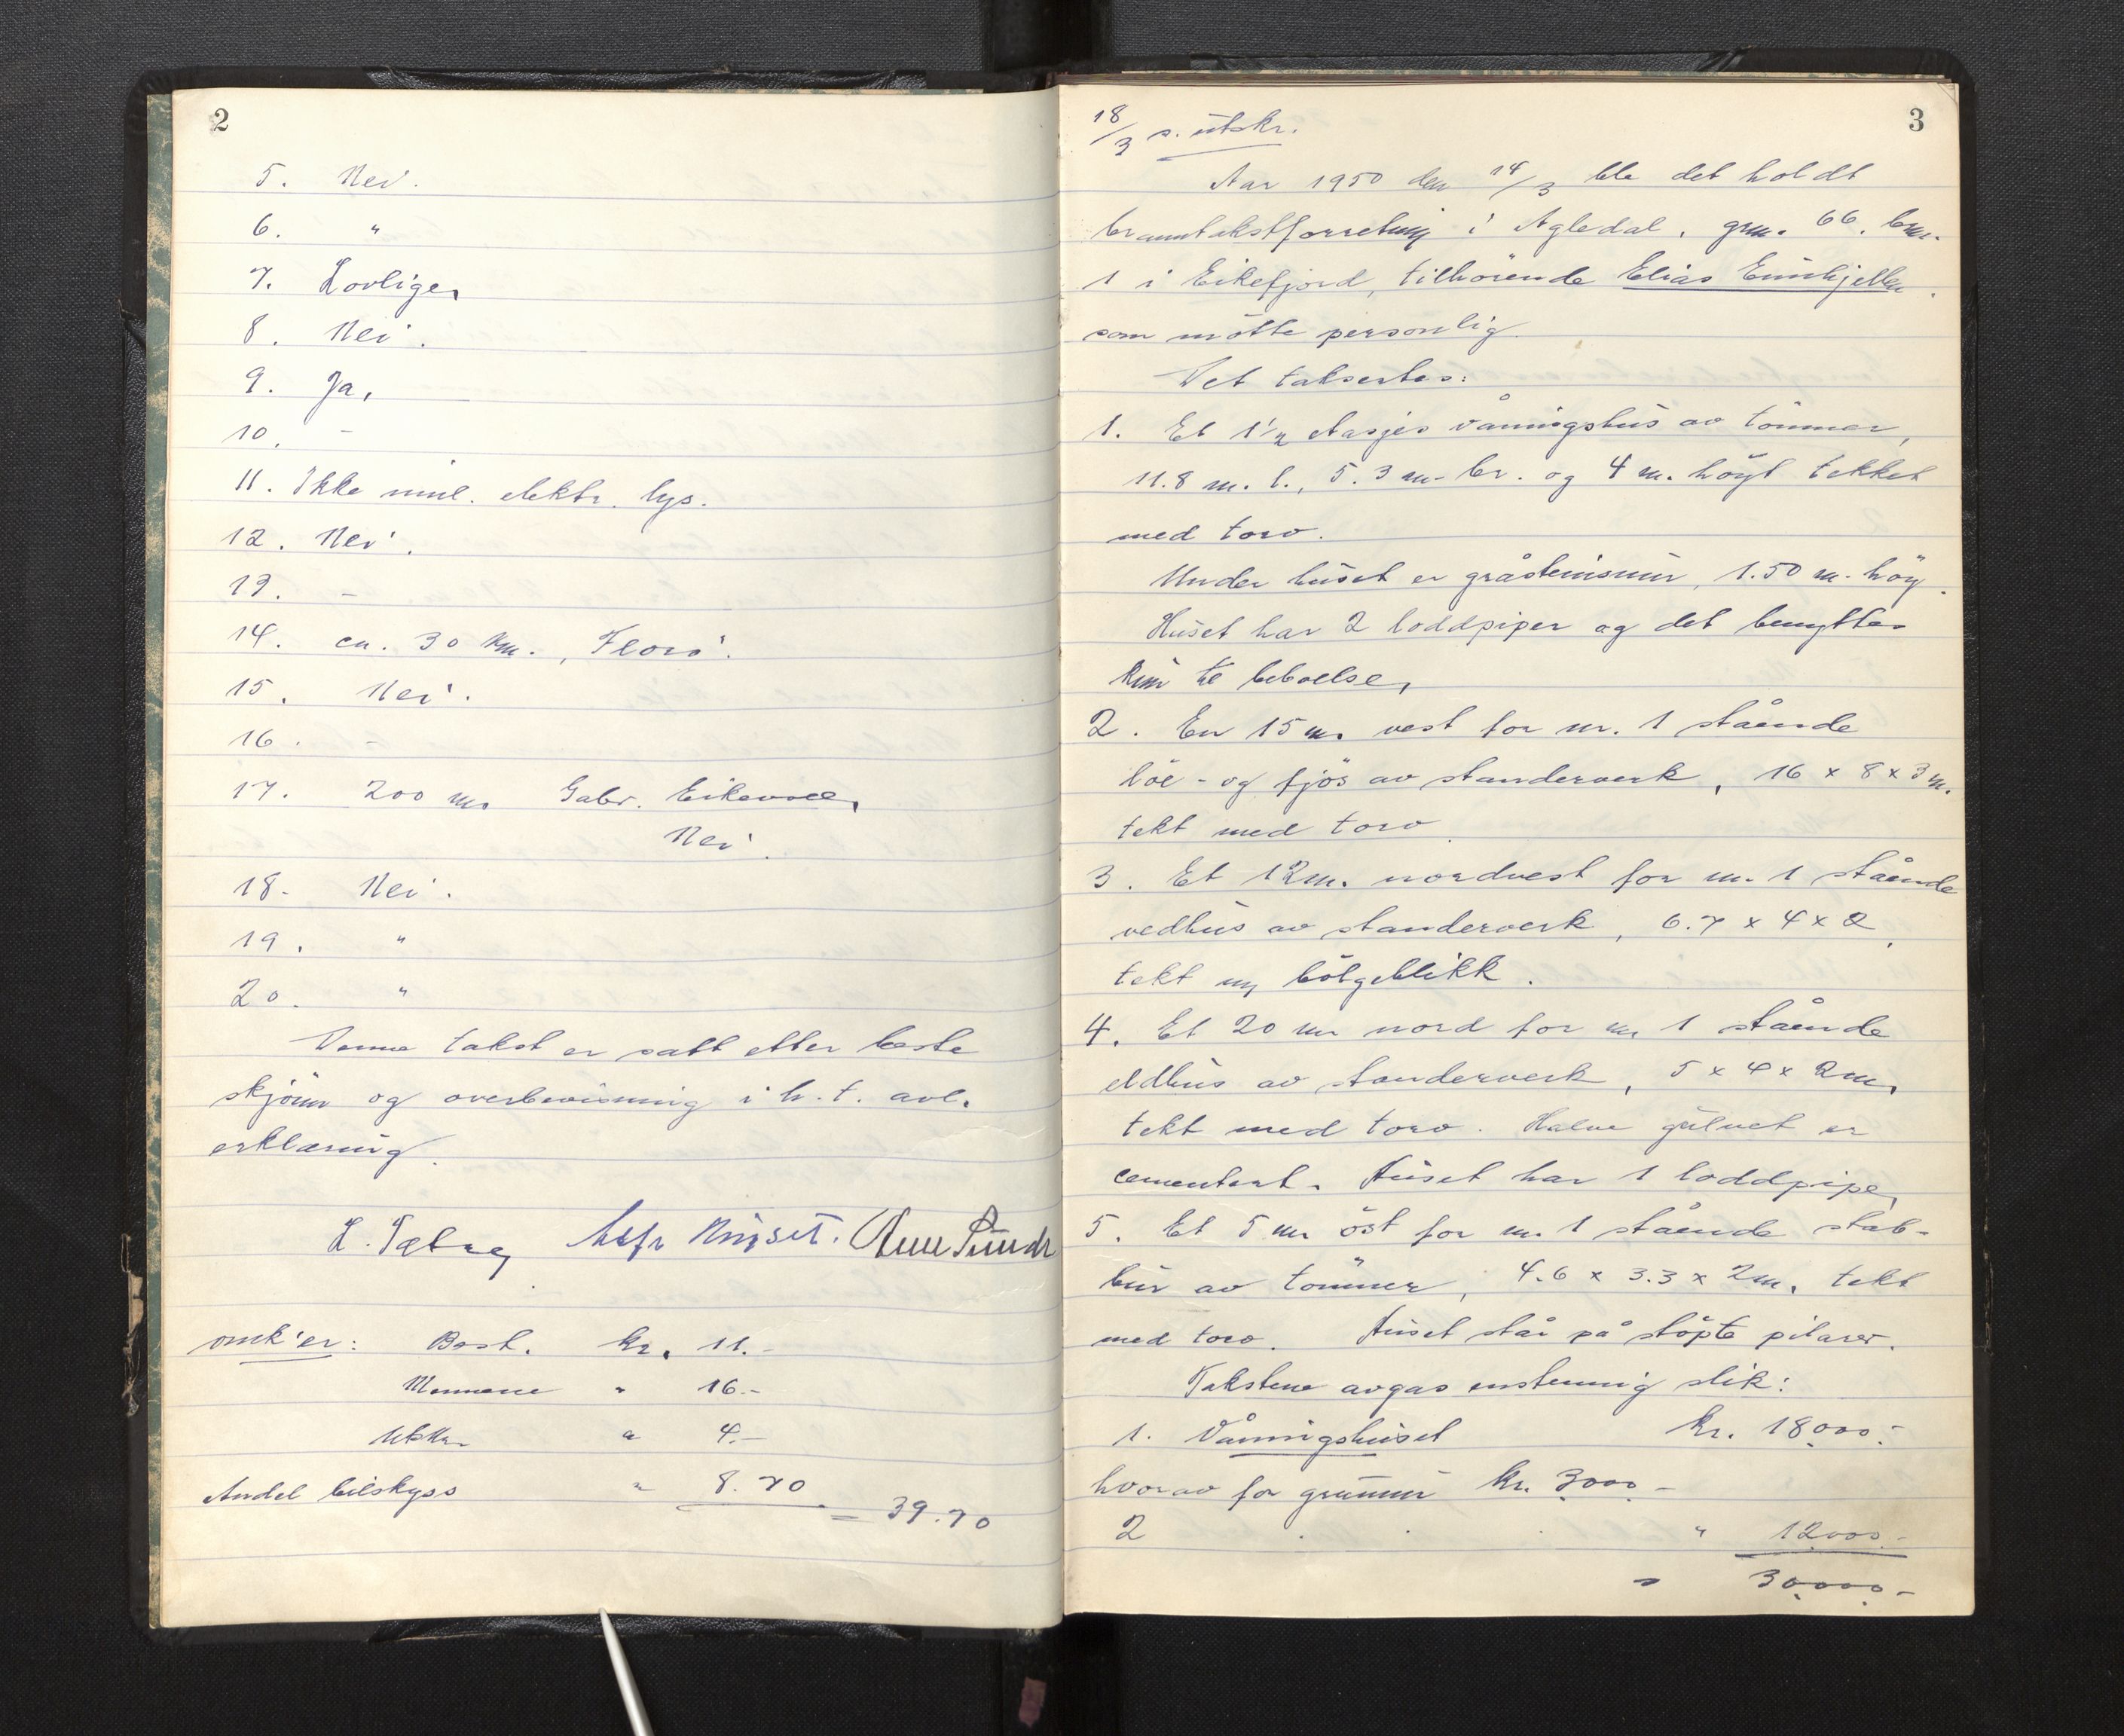 2
5. Nei.
6. "
7. Lovlige,
8. Nei.
9. Ja,
10. -
11. Ikke innl. elektr. lys.
12. Nei.
13. -
14. ca. 30 km., Florö.
15. Nei.
16. -
17. 200 m. Gabr.
Nei.
18. Nei.
19. "
20. "
Denne takst er satt etter beste
skjönn og overbevisning i h. t. avl.
erklæring.
L. Sætrey
omk'er: Best. kr. 11.-
Mennene " 16.-
Utskr. " 4.-
Andel bilskyss " 8.70
= 39.70
3
18/3 s. utskr.
Aar 1950 den 14/3 ble det holdt
branntakstforretning i Agledal, gnr. 66, bnr.
1 i Eikefjord, tilhörende Elias
som mötte personlig.
Det taksertes:
1. Et 1 1/2 etasjes våningshus av tömmer,
11.8 m. l., 5.3 m. br. og 4 m. höyt tekket
med torv.
Under huset er gråsteinsmur, 1.50 m. höy.
Huset har 2 loddpiper og det benyttes
kun til beboelse,
2. En 15 m. vest for nr. 1 stående
löe- og fjös av standerverk, 16 x 8 x 3 m.
tekt med torv.
3. Et 12 m. nordvest for nr. 1 stående
vedhus av standerverk, 6.7 x 4 x 2,
tekt m/ bölgeblikk.
4. Et 20 m nord for nr. 1 stående
eldhus av standerverk, 5 x 4 x 2 m,
tekt med torv. Halve gulvet er
cementert. Huset har 1 loddpipe,
5. Et 5 m öst for nr. 1 stående stab-
bur av tömmer, 4.6 x 3.3 x 2 m. tekt
med torv. Huset står på stöpte pilarer.
Takstene avgas enstemmig slik:
1. Våningshuset kr. 18000.-
hvorav for grunnmur kr. 3000.-
2 " 12000.-
" 30.000.-